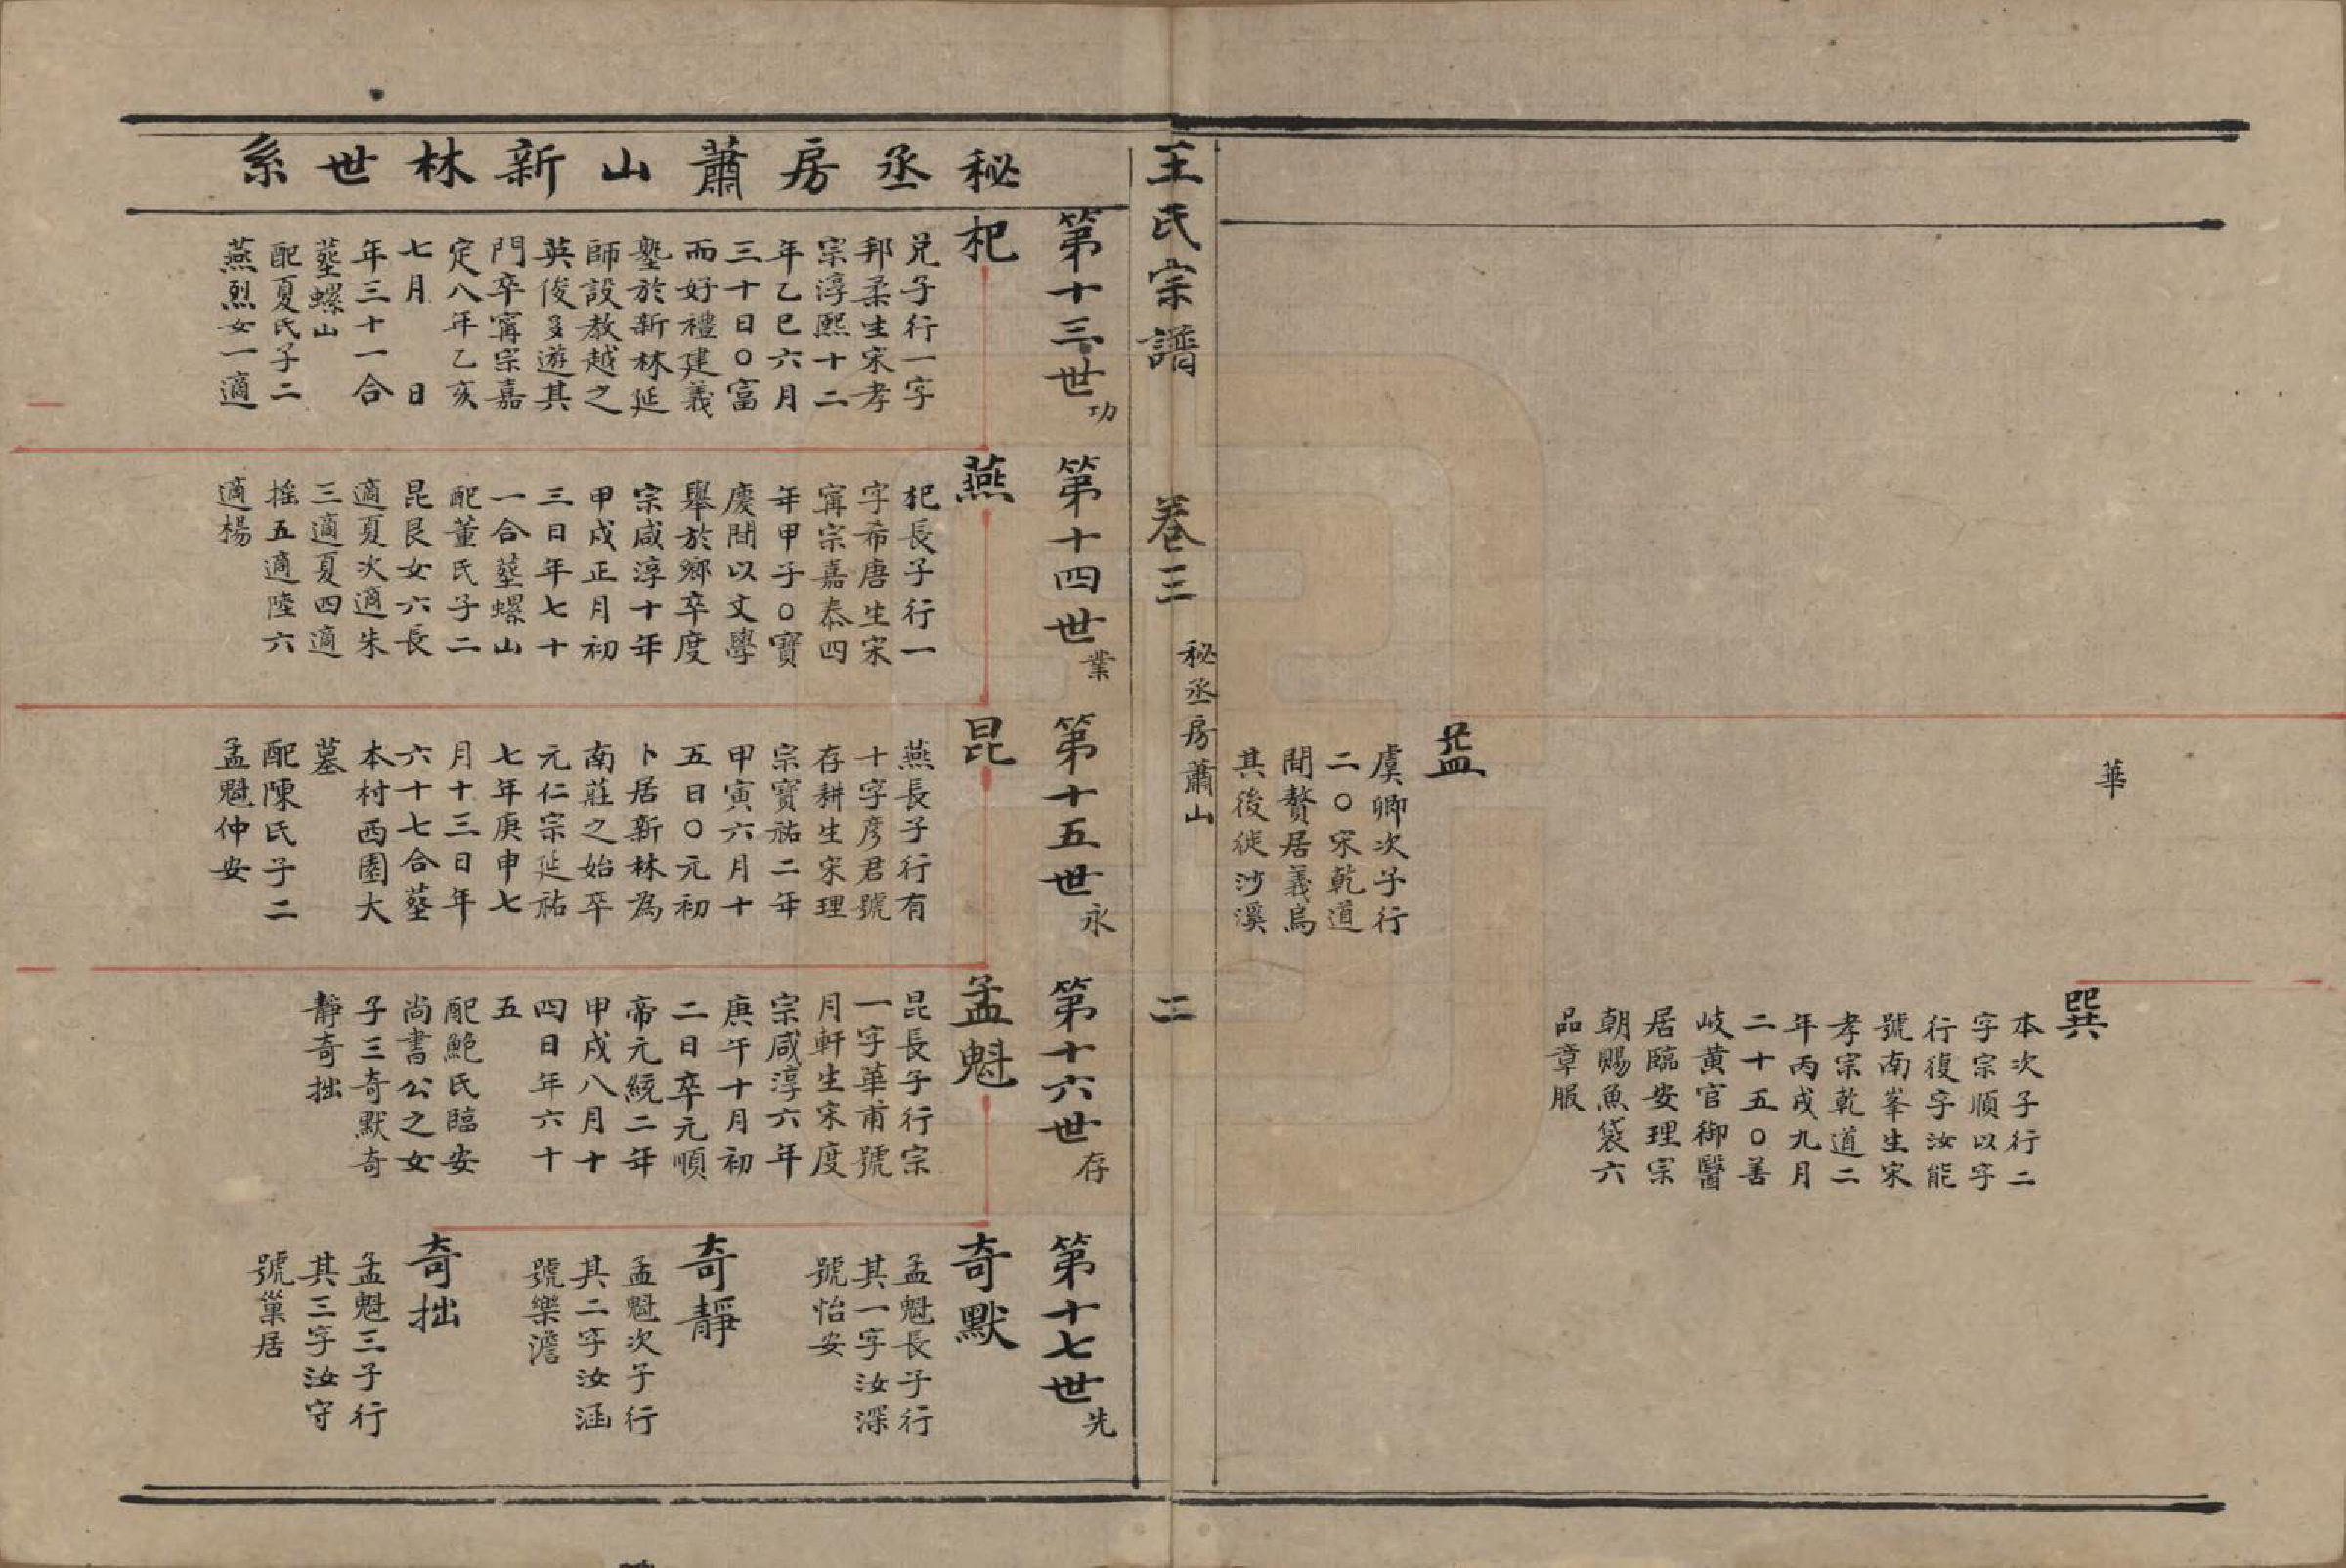 華
巽
本次子行二
字宗順以字
行復字汝能
號南峯生宋
孝宗乾道二
年丙戌九月
二十五〇善
岐黄官御醫
居臨安理宗
朝賜魚袋六
品章服
益
虞卿次子行
二〇宋乾道
間贅居義烏
其後徙沙溪
王氏宗譜 卷三 秘丞房蕭山 二
秘丞房蕭山新林世系
第十三世功
杞
兌子行一字
邦柔生宋孝
宗淳熙十二
年乙巳六月
三十日〇富
而好禮建義
塾於新林延
師設教越之
英俊多遊其
門卒甯宗嘉
定八年乙亥
七月 日
年三十一合
塟螺山
配夏氏子二
燕烈女一適
第十四世業
燕
杞長子行一
字希唐生宋
甯宗嘉泰四
年甲子〇寶
慶間以文學
舉於鄉卒度
宗咸淳十年
甲戌正月初
三日年七十
一合塟螺山
配董氏子二
昆艮女六長
適夏次適朱
三適夏四適
搖五適陸六
適楊
第十五世永
昆
燕長子行有
十字彦君號
存耕生宋理
宗寳祐二年
甲寅六月十
五日〇元初
卜居新林為
南莊之始卒
元仁宗延祐
七年庚申七
月十三日年
六十七合塟
本村西園大
墓
配陳氏子二
孟魁仲安
第十六世存
孟魁
昆長子行宗
一字華甫號
月軒生宋度
宗咸淳六年
庚午十月初
二日卒元順
帝元統二年
甲戌八月十
四日年六十
五
配鮑氏臨安
尚書公之女
子三奇默奇
靜奇拙
第十七世先
奇默
孟魁長子行
其一字汝深
號怡安
奇靜
孟魁次子行
其二字汝涵
號樂澹
奇拙
孟魁三子行
其三字汝守
號巢居